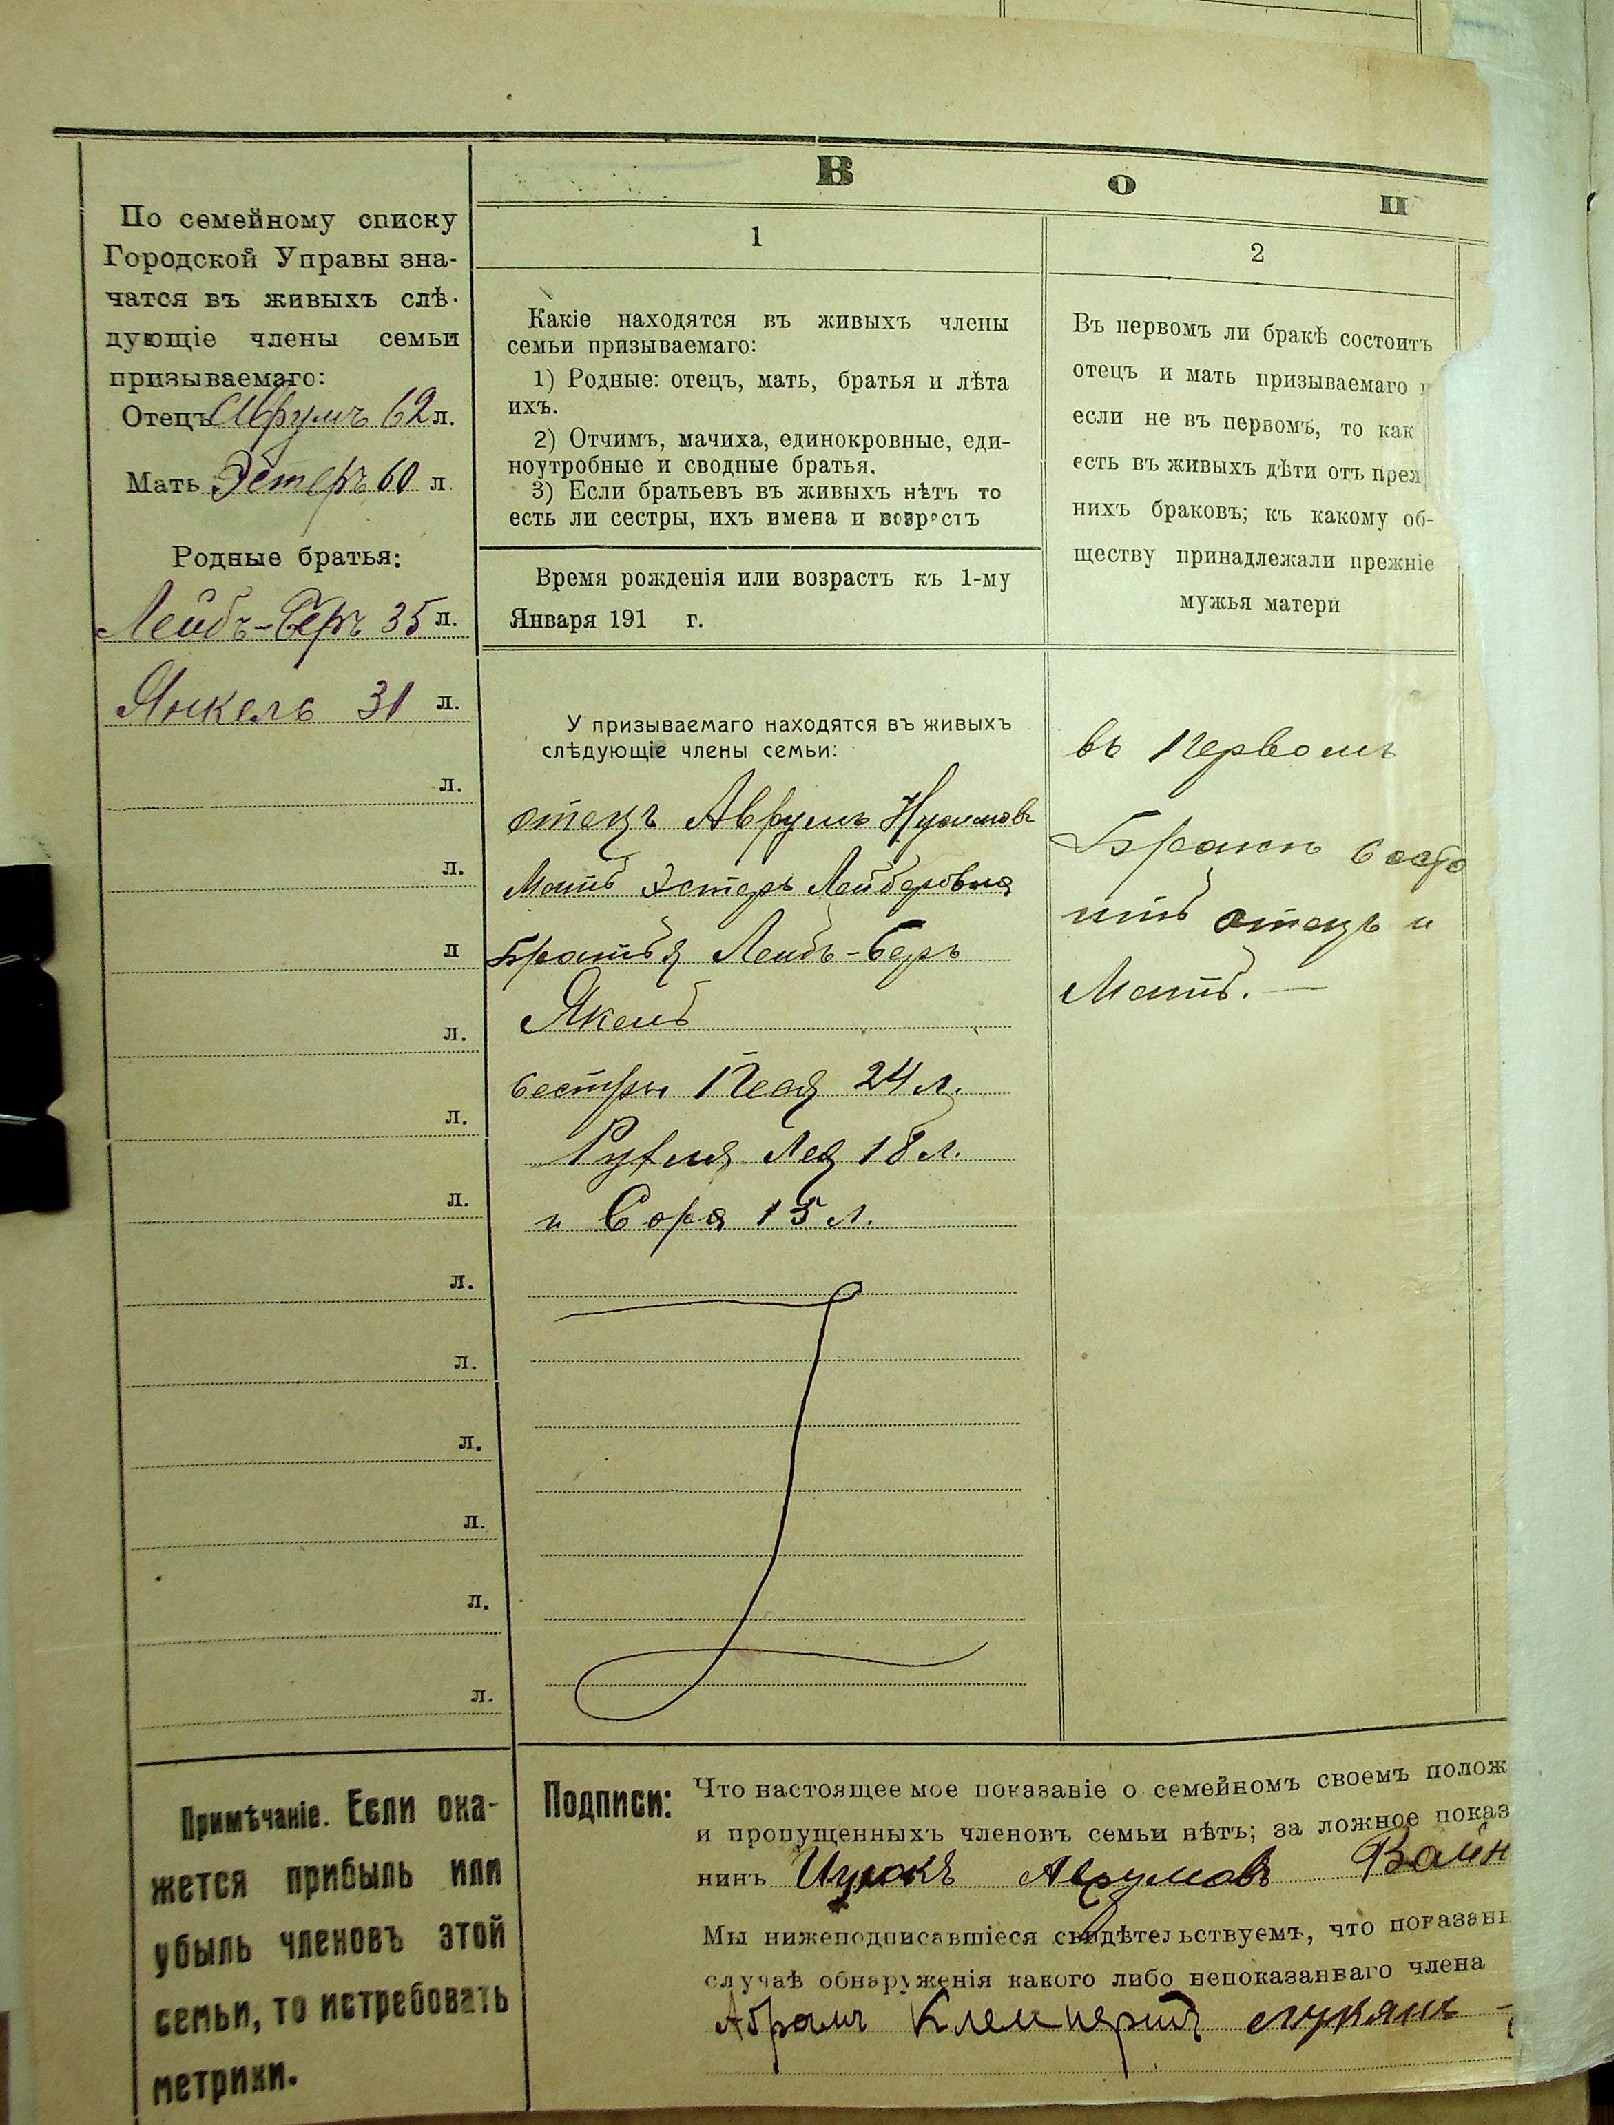 В о п
По семейному списку
Городской Управы зна-
чатся въ живыхъ слѣ-
дующіе члены семьи
призываемаго:
Отецъ Аврумъ 62 л.
Мать Эстеръ 60 л.
Родные братья:
Лейбъ-Беръ 35 л.
Янкель 31 л.
л.
л.
л
л.
л.
л.
л.
л.
л.
л.
л.
л.
Примѣчаніе. Если ока-
жется прибыль или
убыль членовъ этой
семьи, то истребовать
метрики.
1
Какіе находятся въ живыхъ члены
семьи призываемаго:
1) Родные: отецъ, мать, братья и лѣта
ихъ.
2) Отчимъ, мачиха, единокровные, еди-
ноутробные и сводные братья.
3) Если братьевъ въ живыхъ нѣтъ то
есть ли сестры, ихъ имена и возрастъ
Время рожденія или возрастъ къ 1-му
Января 191 г.
У призываемаго находятся въ живыхъ
слѣдующіе члены семьи:
отецъ Аврумъ
Мать Эстеръ Лейберовна
Братья Лейбъ-Беръ
Якель
сестры Песя 24 л.
Рухля Лея 18 л.
и Сора 15 л.
2
Въ первомъ ли бракѣ состоитъ
отецъ и мать призываемаго и
если не въ первомъ, то как
есть въ живыхъ дѣти отъ преж
нихъ браковъ; къ какому об-
ществу принадлежали прежніе
мужья матери
въ Первомъ
Бракѣ состо
итъ отецъ и
Мать. —
Подписи:
Что настоящее мое показаніе о семейномъ своемъ полож
и пропущенныхъ членовъ семьи нѣтъ; за ложное показ
нинъ Ицкокъ Аврумовъ Вайн
Мы нижеподписавшіеся свидѣтельствуемъ, что показан
случаѣ обнаруженія какого либо непоказанваго члена
Абрамъ